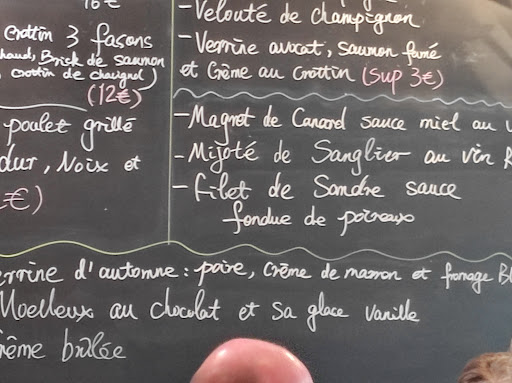 16€
Crottin 3 façons
chaud, Brick de saumon
crottin de chavignol)
(12€)
poulet grillé
dur, Noix et
€)
- Velouté de champignon
- Verrine avocat, saumon fumé
et Crème au Crottin (sup 3€)
- Magret de Canard sauce miel au v
- Mijoté de Sanglier au vin R
- Filet de Sandre sauce
fondue de poireaux
errine d'automne : poire, crème de marron et fromage Bl
Moelleux au chocolat et sa glace vanille
rème brûlée